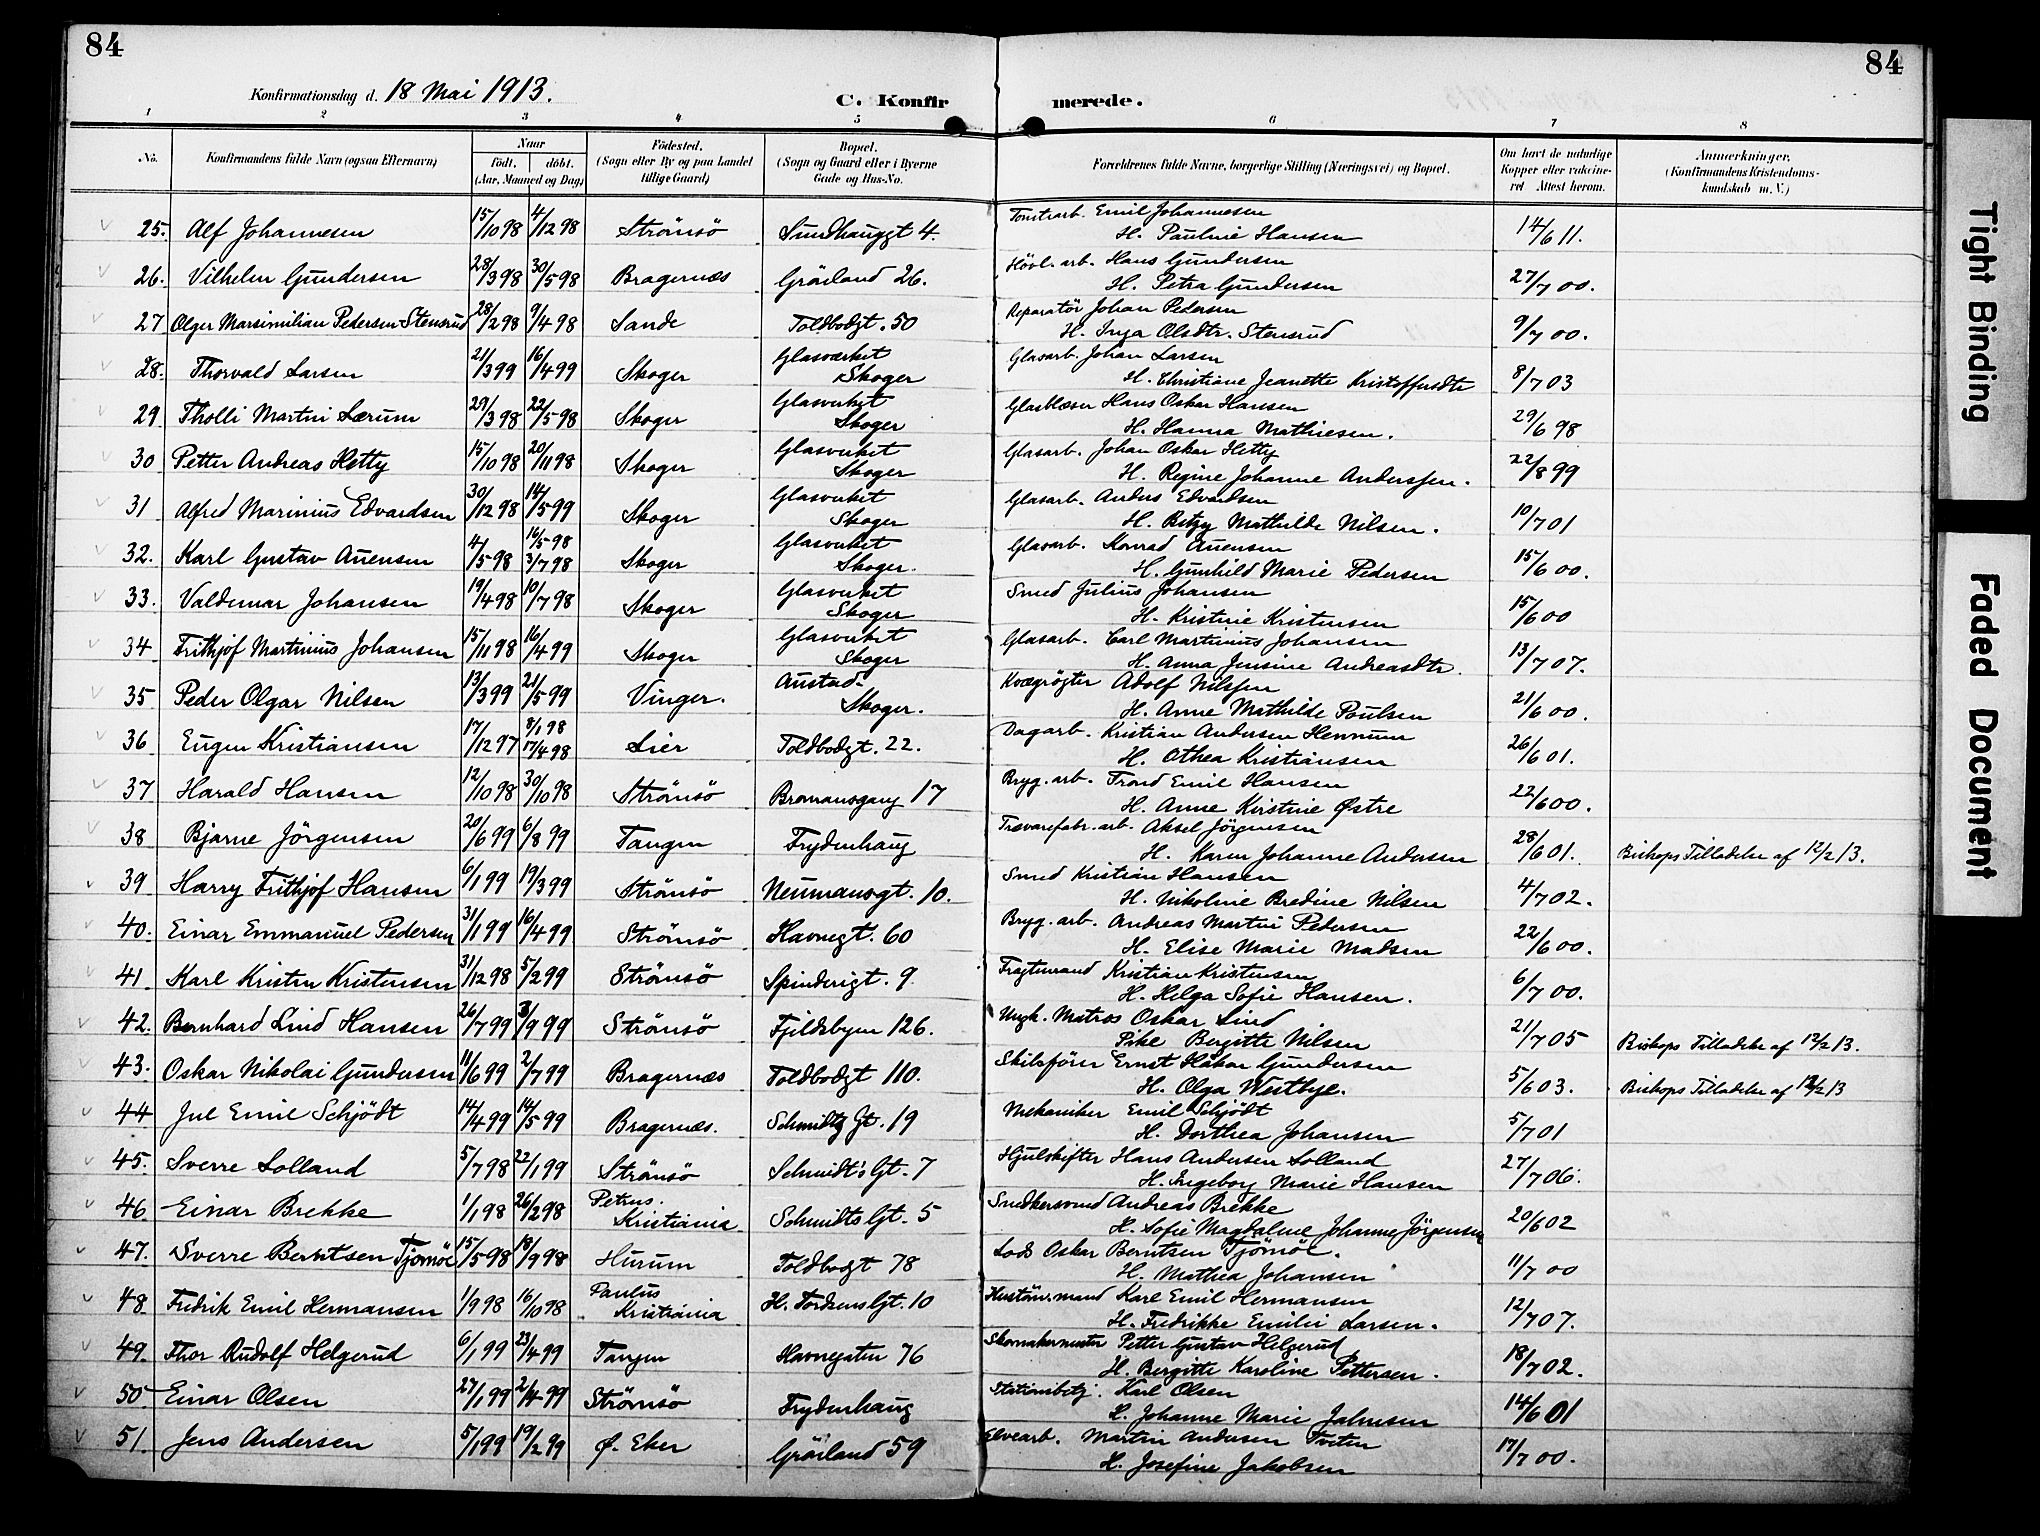 84
84
Konfirmationsdag d. 18 Mai 1913.
C. Konfirmerede.
1 2 3 4 5 6 7 8
No.
Konfirmandens fulde Navn (ogsaa Efternavn)
Naar
født. døbt.
(Aar, Maaned og Dag)
Fødested.
(Sogn eller By og paa Landet
tillige Gaard)
Bopæl.
(Sogn og Gaard eller i Byerne
Gade og Hus-No.
Forældrenes fulde Navne, borgerlige Stilling (Næringsvei) og Bopæl.
Om havt de naturlige
Kopper eller vakcine-
ret Attest herom.
Anmerkninger.
(Konfirmandens Kristendoms-
kundskab m. V.)
25. Alf Johannesen 15/10 98 4/12 98 Strömsö Sundhauggt 4. Tomtearb. Emil Johannesen
H. Pauline Hansen 14/6 11.
26. Vilhelm Gundersen 28/3 98 30/5 98 Bragernæs Grönland 26. Hövl. arb. Hans Gundersen
H. Petra Gundersen 27/7 00.
27 Olger Marsimilian Pedersen Stensrud 28/2 98 9/4 98 Sande Toldbodgt. 50 Reparatör Johan Pedersen
H. Inga Olsdtr. Stensrud 9/7 00.
28. Thorvald Larsen 21/3 99 16/4 99 Skoger Glasværket Skoger Glasarb. Johan Larsen
H. Christiane Jeanette Kristoffersdtr 8/7 03
29 Tholli Martin Lærum 29/3 98 22/5 98 Skoger Glasverket Skoger Glasblæser Hans Oskar Hansen
H. Hanna Mathiesen. 29/6 98
30 Petter Andreas Hetty 15/10 98 20/11 98 Skoger Glasverket Skoger Glasarb. Johan Oskar Hetty
H. Regine Johanne Anderssen. 22/8 99
31 Alfred Marinius Edvardsen 30/12 98 14/5 99 Skoger Glasverket Skoger Glasarb. Anders Edvardsen
H. Betzy Mathilde Nilsen. 10/7 01
32. Karl Gustav Auensen 4/5 98 16/5 98 3/7 98 Skoger Glasverket Skoger. Glasarb. Konrad Auensen
H. Gunhild Marie Pedersen 15/6 00.
33. Valdemar Johansen 19/4 98 10/7 98 Skoger Glasverket Skoger Smed Julius Johansen
H. Kristine Kristensen 15/6 00
34 Frithjof Martinius Johansen 15/11 98 16/4 99 Skoger Glasverket Skoger Glasarb. Carl Martinius Johansen
H. Anna Jensine Andreasdtr. 13/7 07.
35 Peder Olgar Nilsen 13/3 99 21/5 99 Vinger. Austad- Skoger. Kvægrögter Adolf Nilssen
H. Anne Mathilde Poulsen 21/6 00.
36 Eugen Kristiansen 17/12 97 8/1 98 17/4 98 Lier Toldbodgt. 22. Dagarb. Kristian Andersen Hennum
H. Othea Kristiansen 26/6 01.
37 Harald Hansen 12/10 98 30/10 98 Strömsö Bromansgang 17 Bryg. arb. Trond Emil Hansen
H. Anne Kirstine Østre 22/6 00.
38 Bjarne Jörgensen 20/6 99 6/8 99 Tangen Frydenhaug Trævarefabr. arb. Aksel Jörgensen
H. Karen Johanne Andersen 28/6 01. Bishops Tilladelse af 12/2 13.
39 Harry Frithjof Hansen 6/1 99 19/3 99 Strömsö Neumansgt. 10. Smed Kristian Hansen
H. Nikoline Bredine Nilsen 4/7 02.
40. Einar Emmanuel Pedersen 31/1 99 16/4 99 Strömsö Havnegt. 60 Bryg. arb. Andreas Martin Pedersen
H. Elise Marie Madsen 22/6 00.
41. Karl Kristen Kristensen 31/12 98 5/2 99 Strömsö Spinderigt. 9. Fragtemand Kristian Kristensen
H. Helga Sofie Hansen. 6/7 00.
42. Bernhard Lind Hansen 26/7 99 3/9 99 Strömsö Fjeldsbyen 126. Ungk. Matros Oskar Lind
Pike Birgitte Nilsen 21/7 05 Bishops Tilladelse af 12/2 13.
43. Oskar Nikolai Gundersen 11/6 99 2/7 99 Bragernæs Toldbodgt 110. Skibsförer Ernst Håkon Gundersen
H. Olga Westbye. 5/6 03. Bishops Tilladelse af 12/2 13
44 Jul Emil Schjödt 14/4 99 14/5 99 Bragernæs. Schmidts Gt. 19 Mekaniker Emil Schjödt
H. Dorthea Johansen 5/7 01
45. Sverre Solland 5/7 98 22/1 99 Strömsö Schmidt's Gt. 7 Hjulskifter Hans Andersen Solland
H. Ingeborg Marie Hansen 27/7 06.
46. Einar Brekke 1/1 98 26/2 98 Petrus. Kristiania Schmidts Gt. 5 Snedkersvend Andreas Brekke
H. Sofie Magdalene Johanne Jörgensen 20/6 02
47. Sverre Berntsen Tjömöe 15/5 98 18/9 98 Hurum Toldbogt 78 Lods Oskar Berntsen Tjömöe.
H. Mathea Johansen 11/7 00
48. Fredrik Emil Hermansen 1/9 98 16/10 98 Paulus Kristiania H. Tordsens Gt. 10 Karl Emil Hermansen
H. Fredrikke Emilie Larsen. 12/7 07.
49. Thor Rudolf Helgerud 6/1 99 23/4 99 Tangen Havnegaten 76 Skomakermester Petter Gustav Helgerud
H. Bergitte Karoline Pettersen. 18/7 02.
50. Einar Olsen 27/1 99 2/4 99 Strömsö Frydenhaug Stationsbetj. Karl Olsen
H. Johanne Marie Jahnsen 14/6 01
51. Jens Andersen 5/1 99 19/2 99 Ø. Eker Grönland 59 Elvearb. Martin Andersen Tveten
H. Josefine Jakobsen 17/7 00.
Tight Binding
Faded Document